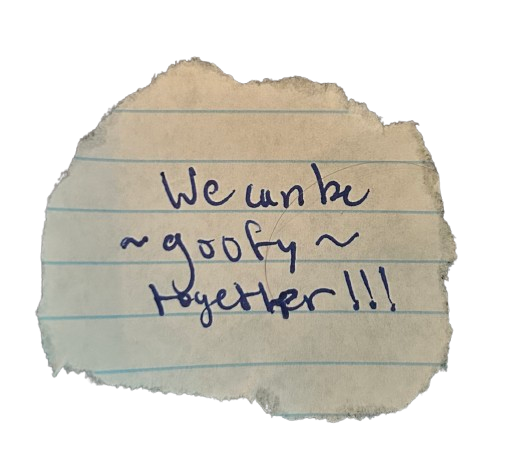 We can be
~ goofy ~
together!!!